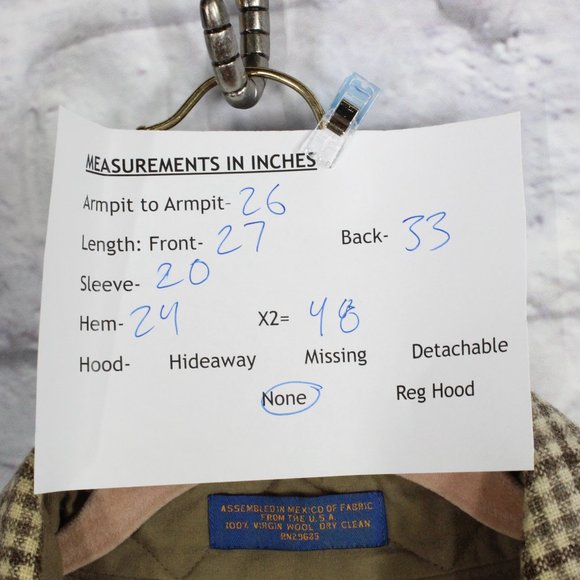 MEASUREMENTS IN INCHES
Armpit to Armpit- 26
Length: Front- 27 Back- 33
Sleeve- 20
Hem- 24 X2= 48
Hood- Hideaway Missing Detachable
None Reg Hood
ASSEMBLED IN MEXICO OF FABRIC
FROM THE U.S.A.
100% VIRGIN WOOL DRY CLEAN
RN29685